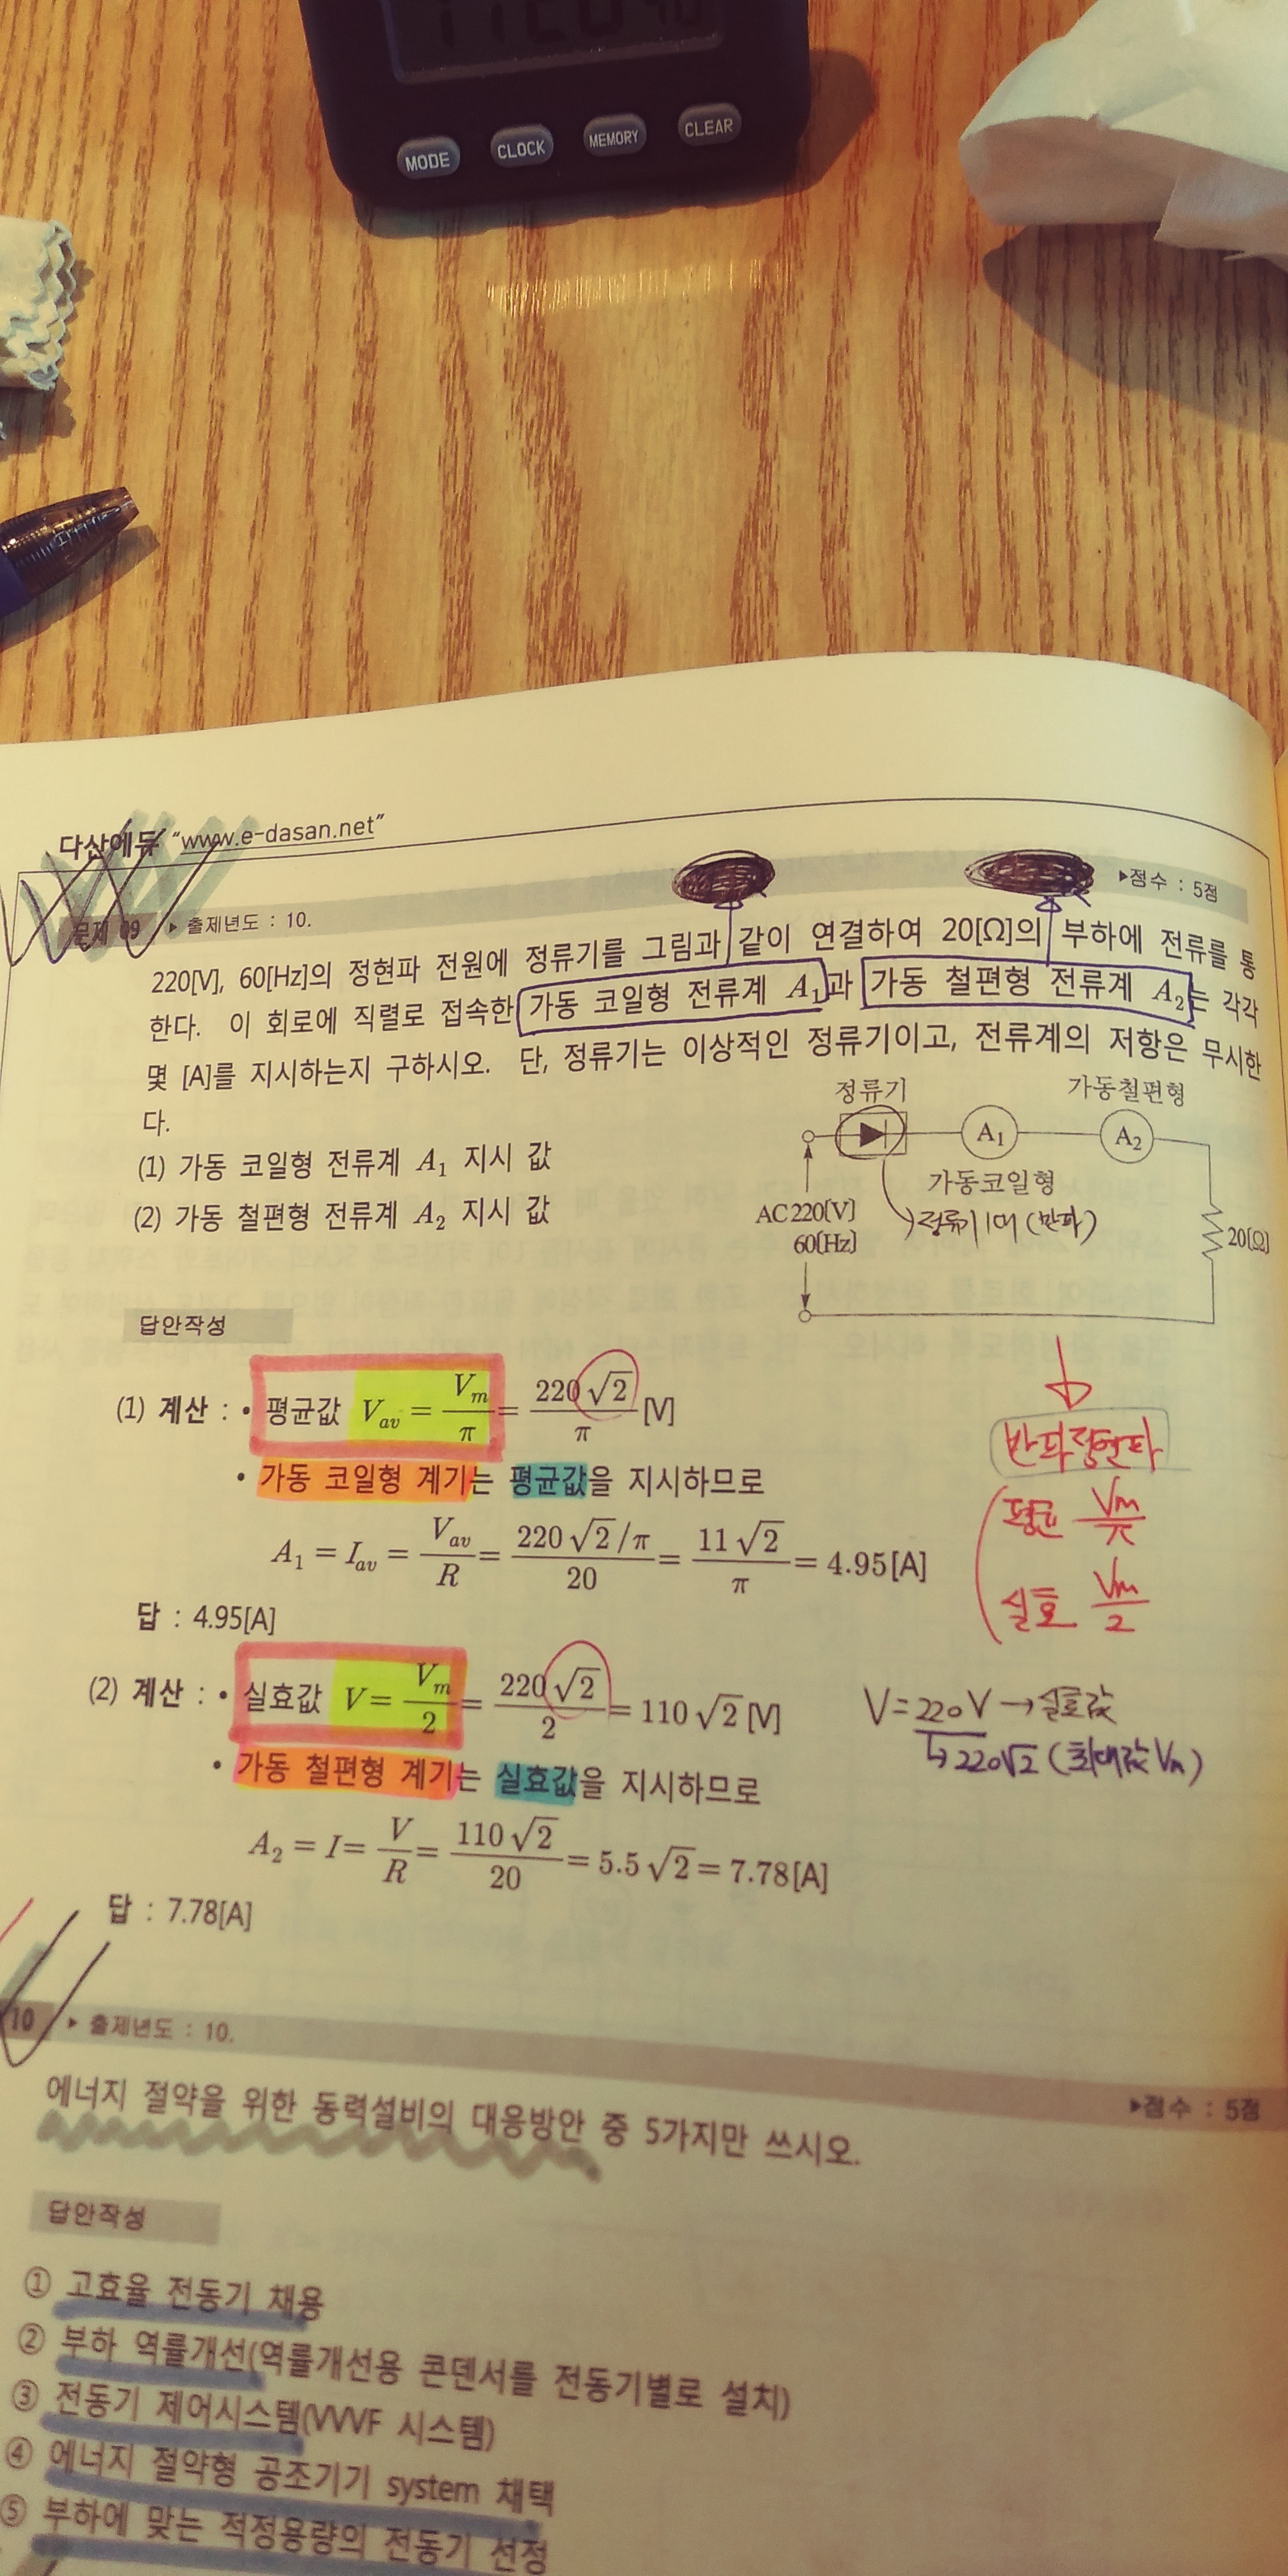 MODE CLOCK MEMORY CLEAR
다산에듀 “www.e-dasan.net”
문제 09 ▶ 출제년도 : 10. ▶점수 : 5점
220[V], 60[Hz]의 정현파 전원에 정류기를 그림과 같이 연결하여 20[Ω]의 부하에 전류를 통
한다. 이 회로에 직렬로 접속한 가동 코일형 전류계 A₁과 가동 철편형 전류계 A₂는 각각
몇 [A]를 지시하는지 구하시오. 단, 정류기는 이상적인 정류기이고, 전류계의 저항은 무시한
다.
(1) 가동 코일형 전류계 A₁ 지시 값
(2) 가동 철편형 전류계 A₂ 지시 값
정류기 가동철편형
A₁ A₂
가동코일형
AC 220[V]
60[Hz]
정류기 1대 (반파)
20[Ω]
답안작성
(1) 계산 : • 평균값 V_av = V_m/π = 220√2/π [V]
• 가동 코일형 계기는 평균값을 지시하므로
A₁ = I_av = V_av/R = (220√2/π)/20 = 11√2/π = 4.95[A]
답 : 4.95[A]
반파정현파
평균 Vm/π
실효 Vm/2
(2) 계산 : • 실효값 V = V_m/2 = 220√2/2 = 110√2 [V]
• 가동 철편형 계기는 실효값을 지시하므로
A₂ = I = V/R = 110√2/20 = 5.5√2 = 7.78[A]
답 : 7.78[A]
V = 220V → 실효값
↳ 220√2 (최대값 Vm)
10 ▶ 출제년도 : 10. ▶점수 : 5점
에너지 절약을 위한 동력설비의 대응방안 중 5가지만 쓰시오.
답안작성
① 고효율 전동기 채용
② 부하 역률개선(역률개선용 콘덴서를 전동기별로 설치)
③ 전동기 제어시스템(VVVF 시스템)
④ 에너지 절약형 공조기기 system 채택
⑤ 부하에 맞는 적정용량의 전동기 선정